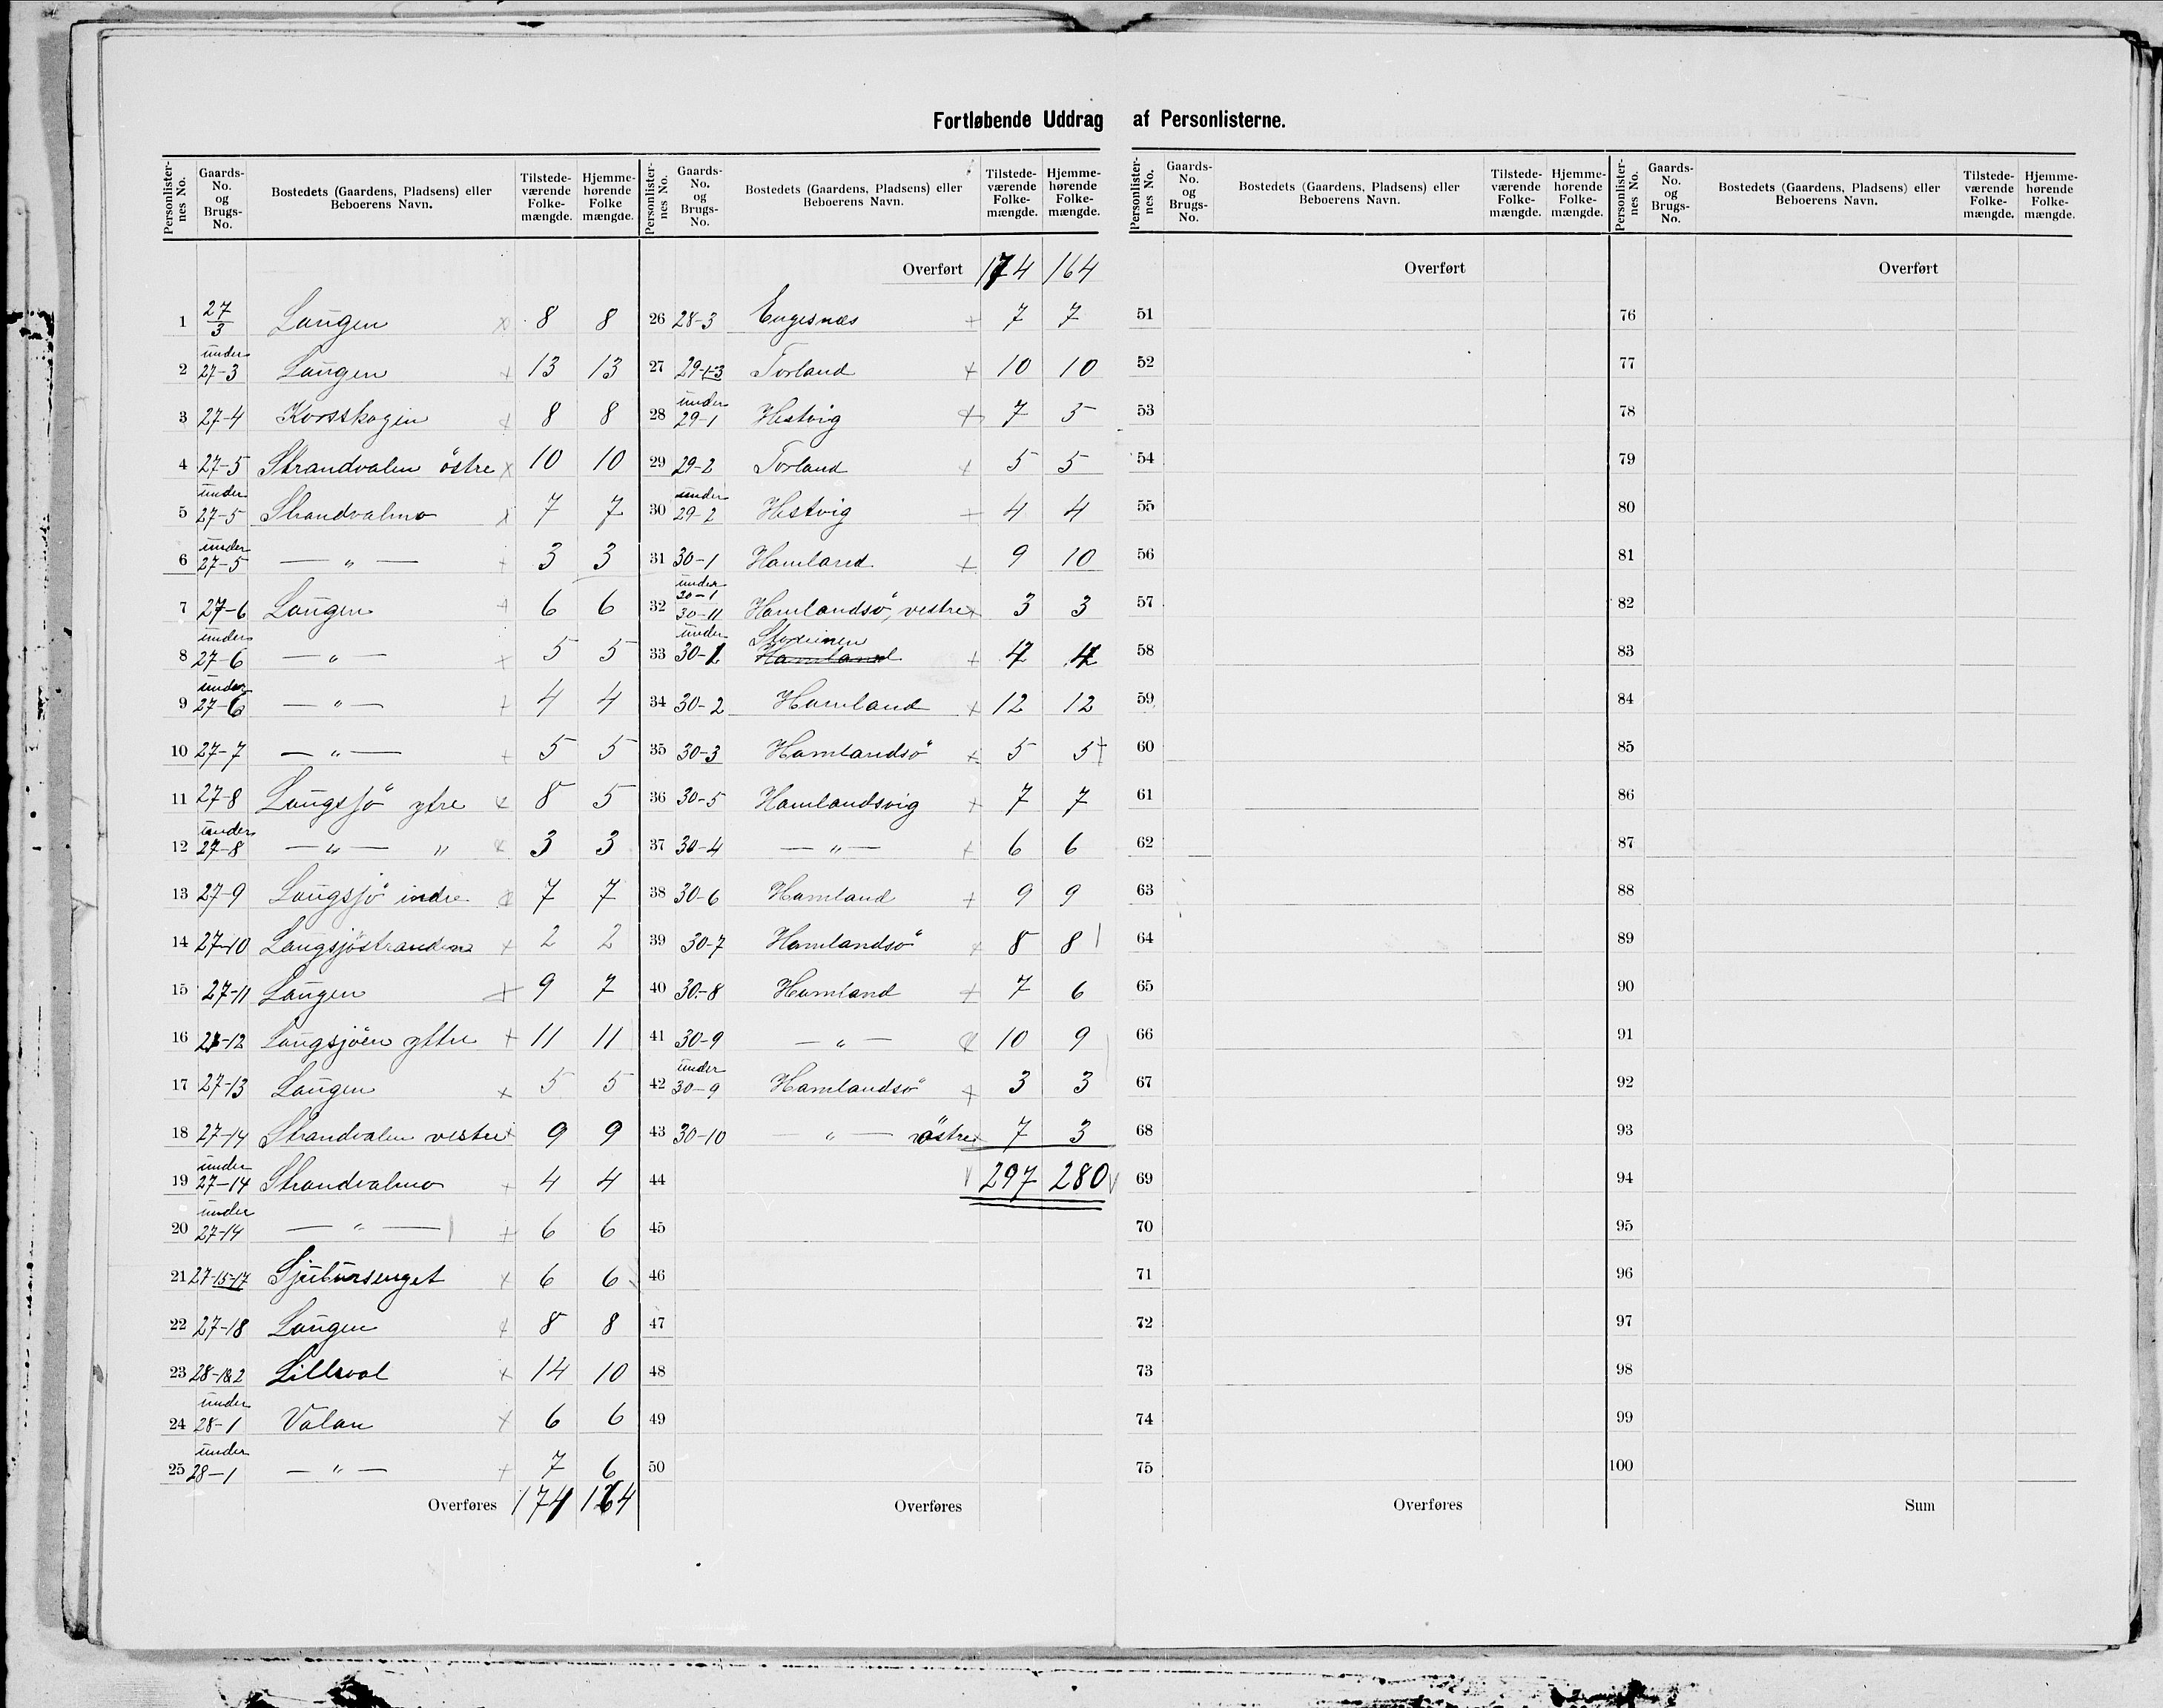 Fortløbende Uddrag af Personlisterne.
Personlister- nes No. | Gaards- No. og Brugs- No. | Bostedets (Gaardens, Pladsens) eller Beboerens Navn. | Tilstede- værende Folke- mængde. | Hjemme- hørende Folke mængde.
1 27/3 Laugen x 8 8
2 under 27-3 Laugen x 13 13
3 27-4 Korsskogen x 8 8
4 27-5 Strandvalen östre x 10 10
5 under 27-5 Strandvalmo x 7 7
6 under 27-5 — " — x 3 3
7 27-6 Laugen x 6 6
8 under 27-6 — " — x 5 5
9 under 27-6 — " — x 4 4
10 27-7 — " — x 5 5
11 27-8 Laugsjö ytre x 8 5
12 under 27-8 — " — " x 3 3
13 27-9 Laugsjö indre x 7 7
14 27-10 Laugsjöstranden x 2 2
15 27-11 Laugen x 9 7
16 27-12 Laugsjöen yttre x 11 11
17 27-13 Laugen x 5 5
18 27-14 Strandvalen vestre x 9 9
19 under 27-14 Strandvalmo x 4 4
20 under 27-14 — " — x 6 6
21 27-15-17 Sjutursenget x 6 6
22 27-18 Laugen x 8 8
23 28-1&2 Lilleval x 14 10
24 under 28-1 Valan x 6 6
25 under 28-1 — " — x 7 6
Overføres 174 164
Personlister- nes No. | Gaards- No. og Brugs- No. | Bostedets (Gaardens, Pladsens) eller Beboerens Navn. | Tilstede- værende Folke- mængde. | Hjemme- hørende Folke- mængde.
Overført 174 164
26 28-3 Engesnæs x 7 7
27 29-1-3 Torland x 10 10
28 under 29-1 Hestvig x 7 5
29 29-2 Torland x 5 5
30 under 29-2 Hestvig x 4 4
31 30-1 Hamland x 9 10
32 under 30-1 30-11 Hamlandsö, vestre x 3 3
33 under 30-1 Hamland x 4 4
34 30-2 Hamland x 12 12
35 30-3 Hamlandsö x 5 5
36 30-5 Hamlandsvig x 7 7
37 30-4 — " — x 6 6
38 30-6 Hamland x 9 9
39 30-7 Hamlandsö x 8 8
40 30-8 Hamland x 7 6
41 30-9 — " — x 10 9
42 under 30-9 Hamlandsö x 3 3
43 30-10 — " — östre x 7 3
44 297 280
45
46
47
48
49
50
Overføres
Personlister- nes No. | Gaards- No. og Brugs- No. | Bostedets (Gaardens, Pladsens) eller Beboerens Navn. | Tilstede- værende Folke- mængde. | Hjemme- hørende Folke- mængde.
Overført
51
52
53
54
55
56
57
58
59
60
61
62
63
64
65
66
67
68
69
70
71
72
73
74
75
Overføres
Personlister- nes No. | Gaards- No. og Brugs- No. | Bostedets (Gaardens, Pladsens) eller Beboerens Navn. | Tilstede- værende Folke- mængde. | Hjemme- hørende Folke- mængde.
Overført
76
77
78
79
80
81
82
83
84
85
86
87
88
89
90
91
92
93
94
95
96
97
98
99
100
Sum